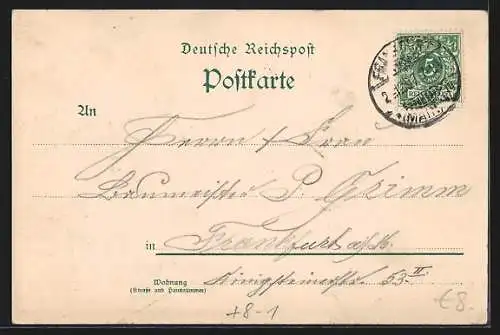 Deutsche Reichspost
Postkarte
An
Herrn & Frau
Baumeister P. Grimm
in Frankfurt a/M.
Wohnung Königsteinerstr. 53 II
(Straße und Hausnummer)
+8-1
€8.
5